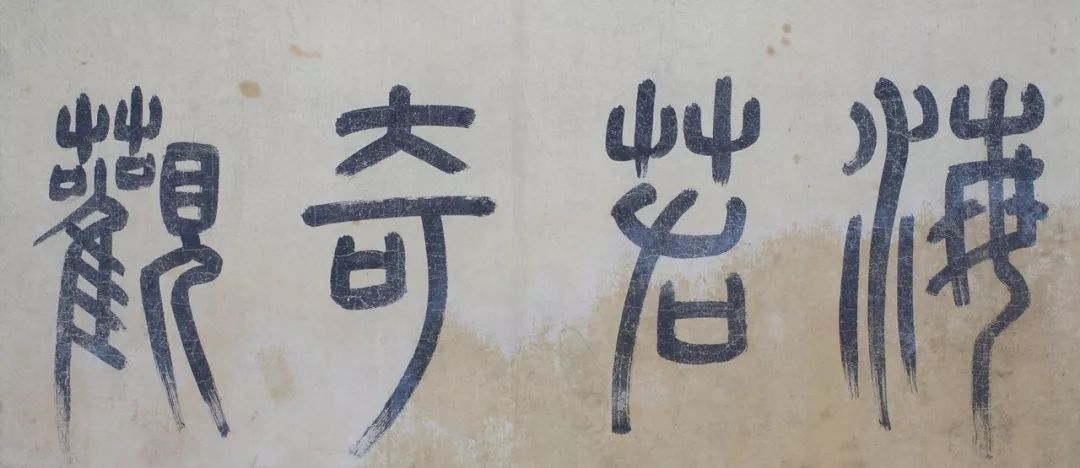 海若奇觀